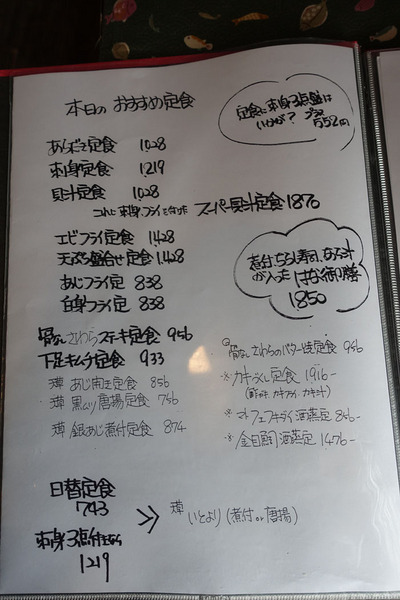 本日の おすすめ定食
定食に刺身3点盛は
いかが? プラス
552円
あらだき定食 1028
刺身定食 1219
貝汁定食 1028
これに 刺身,フライを付けた スーパー貝汁定食 1870
エビフライ定食 1428
天ぷら盛合せ定食 1428
あじフライ定 838
白身フライ定 838
煮付,ちらし寿司,あら汁
が入った はなく御膳
1850
骨なしさわらステキ定食 956
下足キムチ定食 933
あじ南蛮定食 856
黒ムツ唐揚定食 756
銀あじ煮付定食 874
骨なしさわらのバター焼定食 956
※ カキづくし定食 1916-
(酢カキ カキフライ カキ汁)
酒蒸定 856-
※ 金目鯛酒蒸定 1476-
日替定食
743
いとより (煮付 or 唐揚)
刺身3点付なら
1219